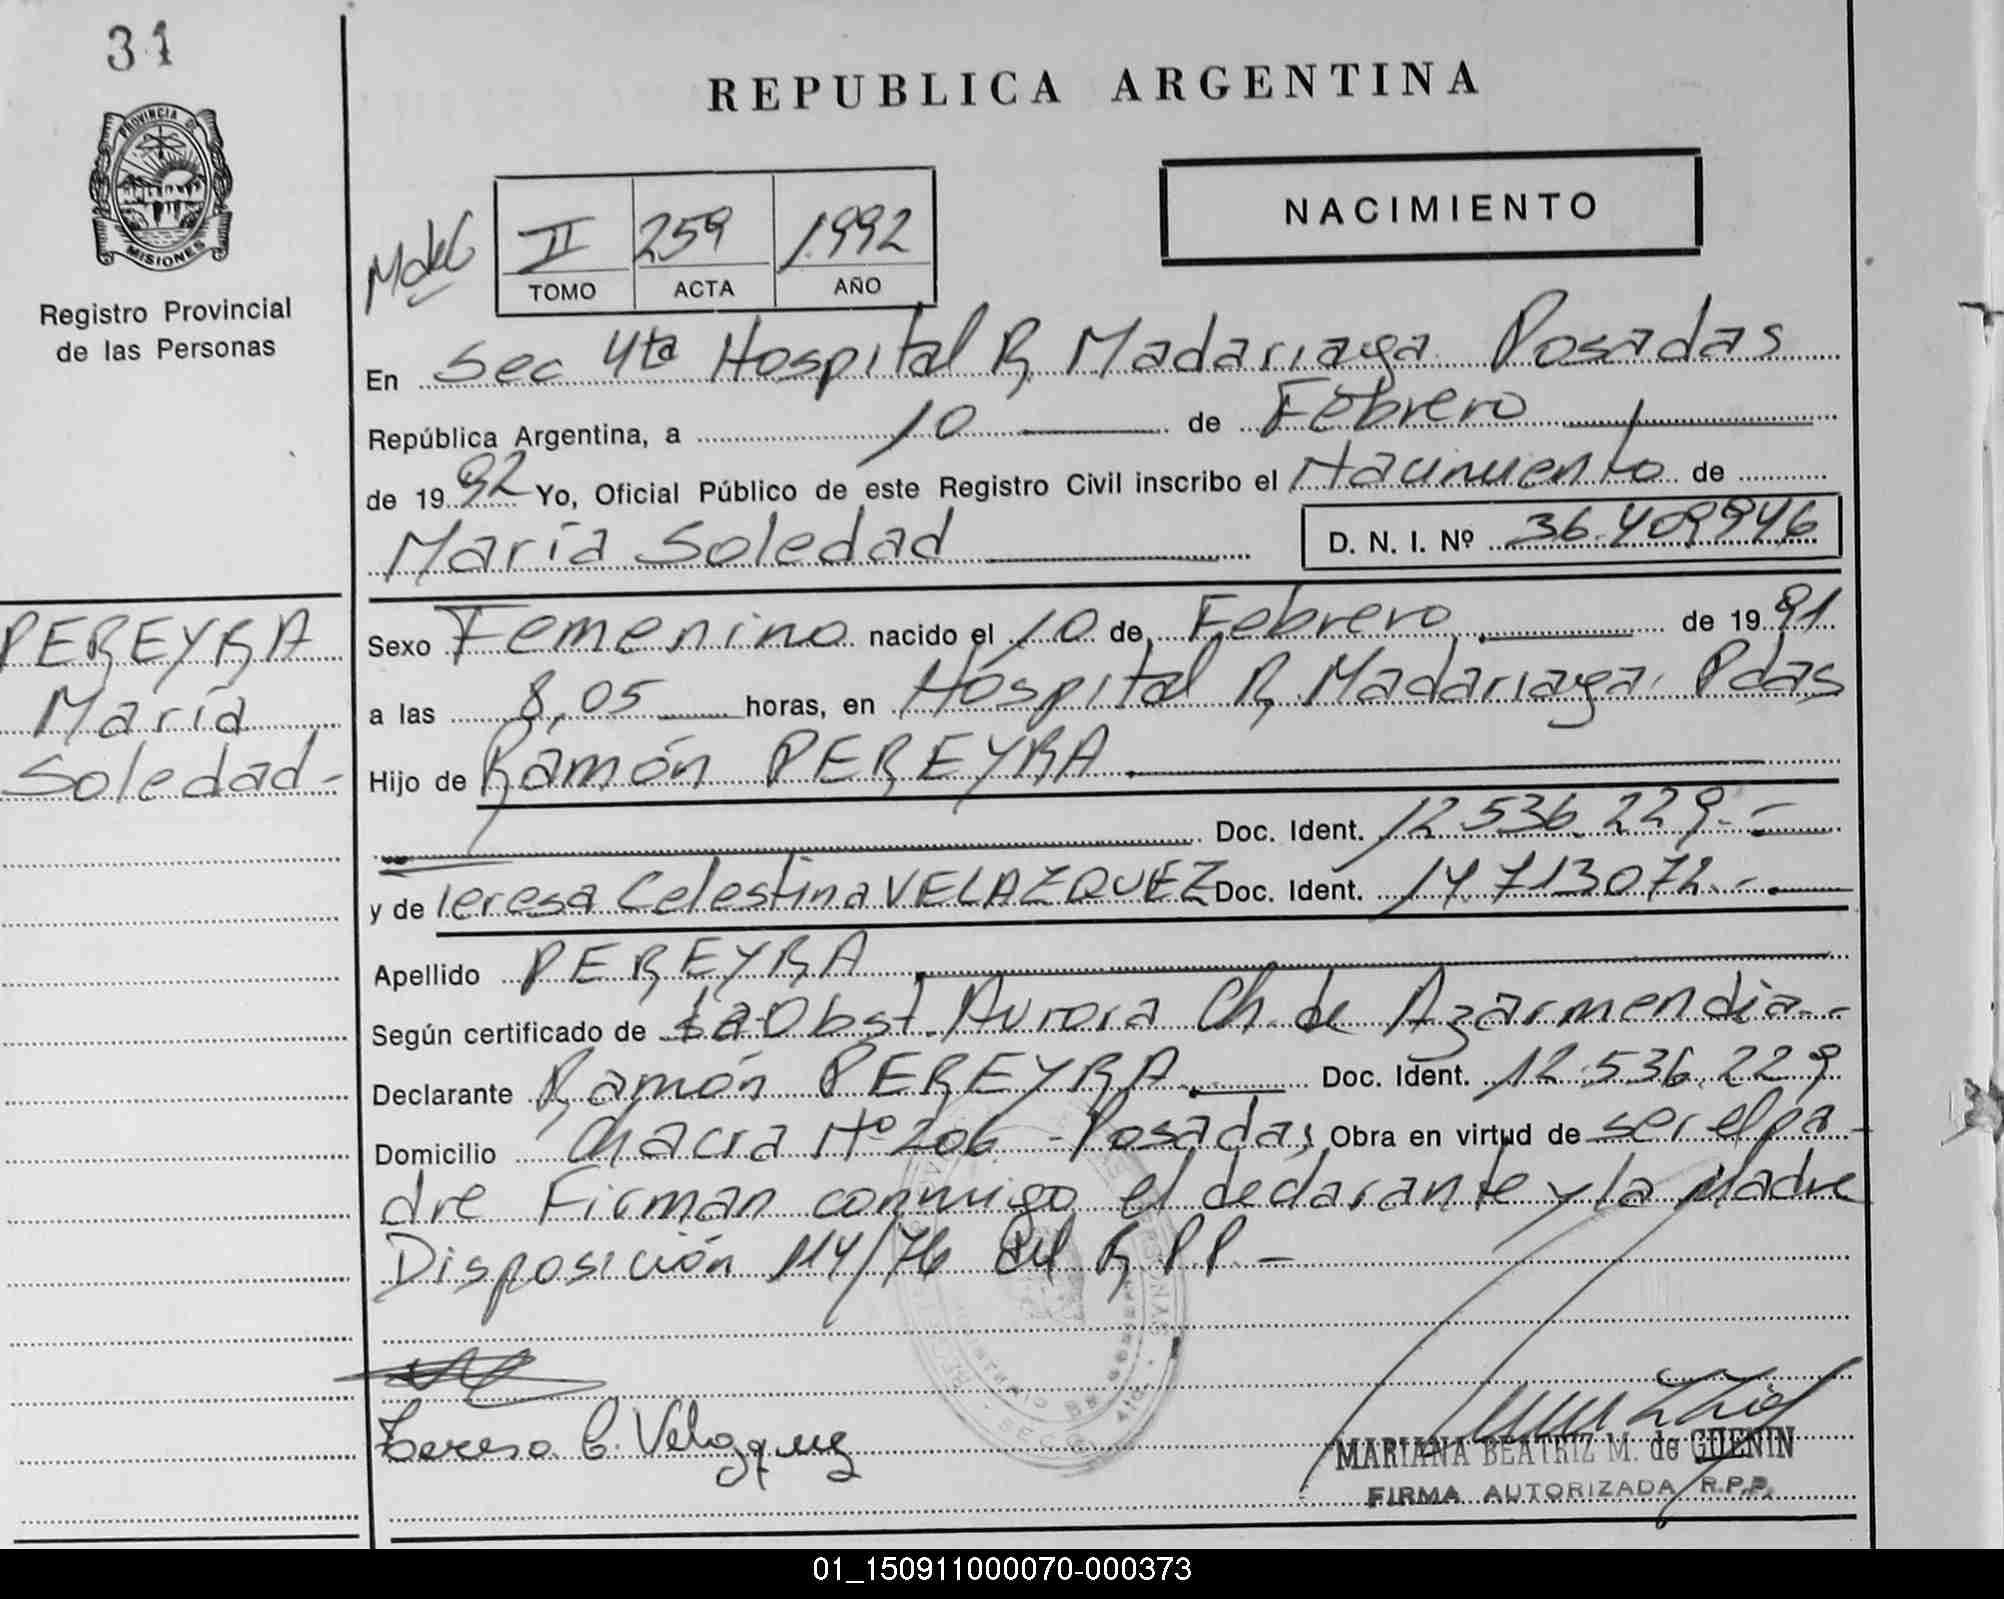 31
REPUBLICA ARGENTINA
PROVINCIA DE
MISIONES
Registro Provincial
de las Personas
II 259 1992
TOMO ACTA AÑO
NACIMIENTO
En Sec 4ta Hospital R. Madariaga Posadas
República Argentina, a 10 de Febrero
de 1992 Yo, Oficial Público de este Registro Civil inscribo el Nacimiento de
María Soledad D. N. I. Nº 36.409946
PEREYRA
María
Soledad-
Sexo Femenino nacido el 10 de Febrero de 1991
a las 8,05 horas, en Hospital R. Madariaga. Pdas
Hijo de Ramón PEREYRA
Doc. Ident. 12.536.229.-
y de Teresa Celestina VELAZQUEZ Doc. Ident. 14.713072.-
Apellido PEREYRA
Según certificado de la Obst. Aurora Ch. de Azarmendia.-
Declarante Ramón PEREYRA. Doc. Ident. 12.536.229
Domicilio Chacra Nº 206 - Posadas Obra en virtud de ser el pa-
dre Firman conmigo el declarante y la Madre
Disposición 114/76 del R.P.P.-
Teresa C. Velazquez
MARIANA BEATRIZ M. de GUENIN
FIRMA AUTORIZADA R.P.P.
01_150911000070-000373